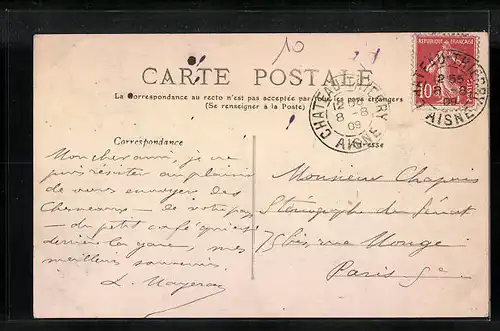 10
CARTE POSTALE
La Correspondance au recto n'est pas acceptée par tous les pays étrangers
(Se renseigner à la Poste)
REPUBLIQUE FRANÇAISE
10
CHATEAU-THIERRY
8 -8
09
AISNE
CHATEAU-THIERRY
12
8 -8
09
AISNE
Correspondance
Adresse
Mon cher ami, je ne
puis résister au plaisir
de vous envoyer des
de votre pays
du petit café qui est
derrière la gare, mes
meilleurs souvenirs.
Monsieur Chapuis
Sténographe du Sénat
75 bis, rue Monge
Paris 5e